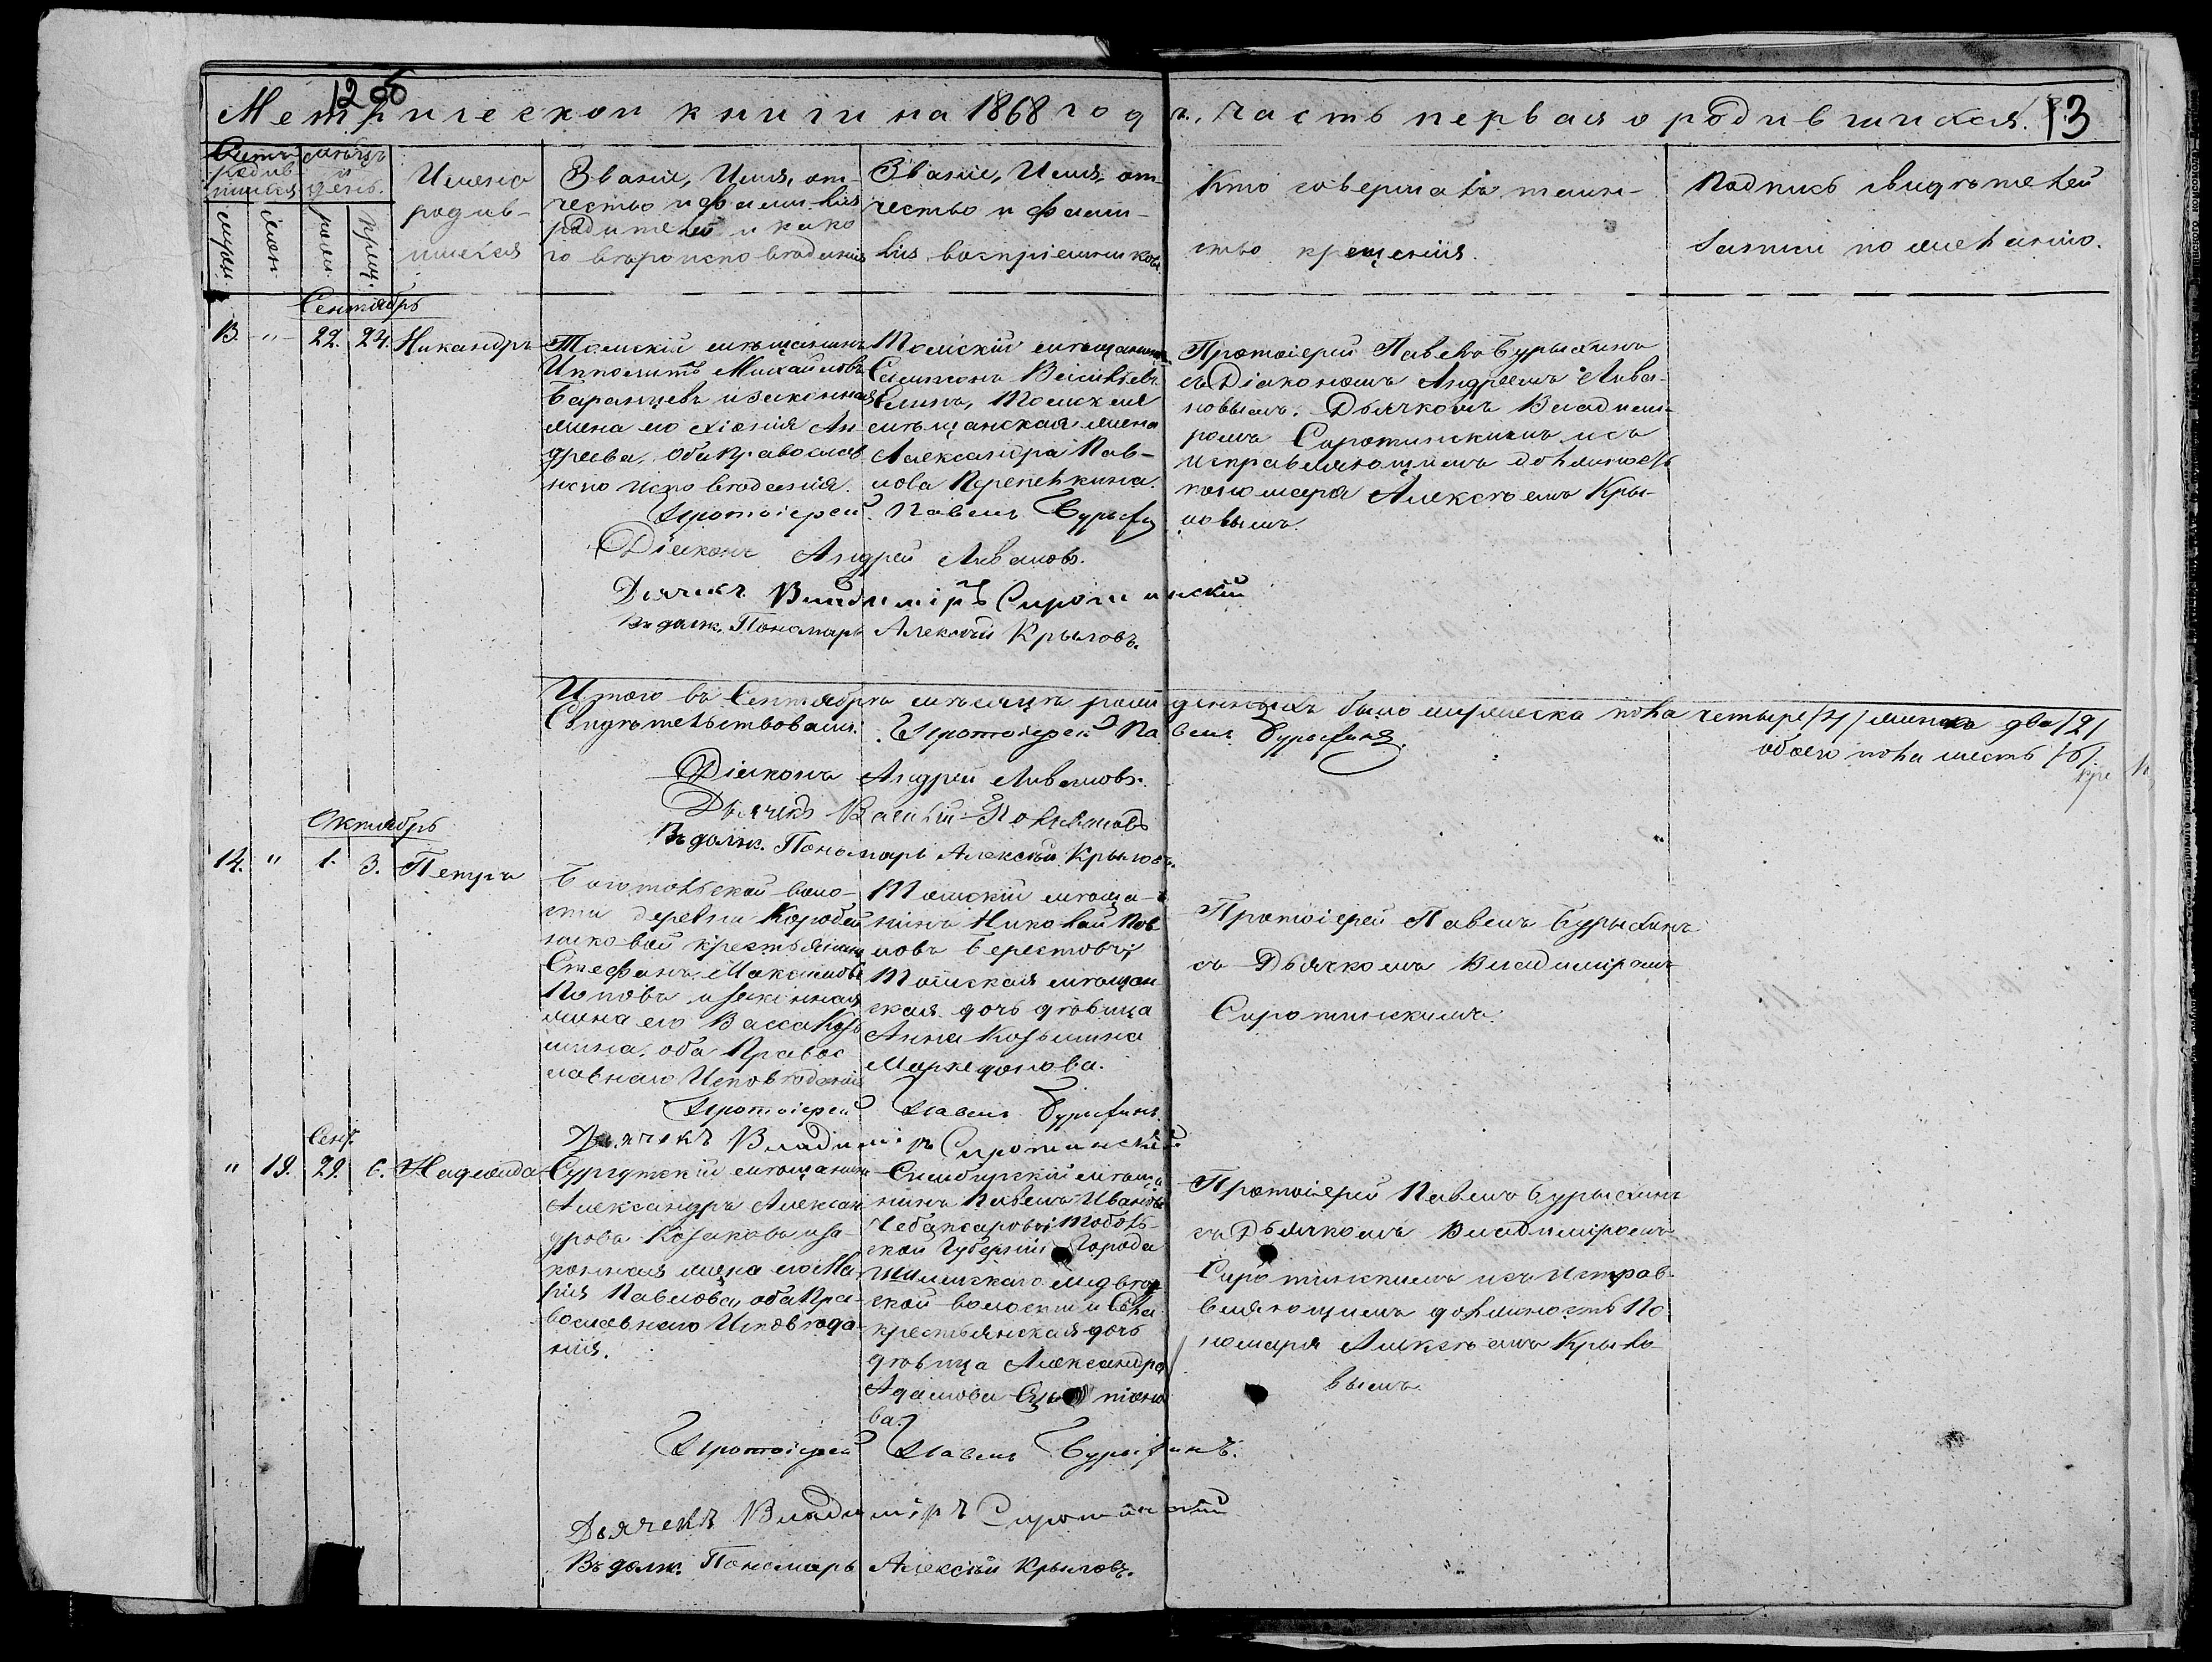 12 об
13
Метрической книги на 1868 годъ, часть первая о родившихся.
Счетъ родив-
шихся
мѣсяцъ
и
день.
муж.
жен.
рожд.
крещ.
Имена
родив-
шихся
Званіе, Имя, от-
чество и фамилія
родителей и како
го вѣроисповѣданія
Званіе, Имя, от-
чество и фами-
лія воспріемниковъ
Кто совершалъ таин-
ство крещенія.
Подпись свидѣтелей
записи по желанію.
Сентябрь
13. " 22. 24. Никандръ
Томскій мѣщанинъ
Ипполитъ Михайловъ
Баранцевъ и законная
жена его Хіонія Ан-
дреева, оба православ
наго исповѣданія.
Томскій мѣщанинъ
Симеонъ Васильевъ
Томская
мѣщанская жена
Александра Пав-
лова Перепелкина.
Протоіерей Павелъ Бурыхинъ
съ Діакономъ Андреемъ Лива-
новымъ. Дьячкомъ Владимі-
ромъ Сиротинскимъ и съ
исправляющимъ должность
пономаря Алексѣемъ Кры-
ловымъ.
Протоіерей Павелъ Бурыхинъ
Діаконъ Андрей Ливановъ.
Дьячекъ Владиміръ Сиротинскій
Въ долж. Пономарь Алексѣй Крыловъ.
Итого въ Сентябрѣ мѣсяцѣ рожденныхъ было мужеска пола четыре /4/ женска два /2/
обоего пола шесть /6/.
Свидѣтельствовали: Протоіерей Павелъ Бурыхинъ.
Діаконъ Андрей Ливановъ.
Дьячекъ Василій
Въ долж. Пономарь Алексѣй Крыловъ.
Октябрь
14. " 1. 3. Петръ
Боготольской воло-
сти деревни Коробей
никовой крестьянинъ
Стефанъ Максимовъ
Поповъ и законная
жена его Васса Кузь
мина, оба Правос
лавнаго Исповѣданія
Томскій мѣща-
нинъ Николай Пав
ловъ Берестовъ;
Томская мѣщан
ская дочь дѣвица
Анна Козьмина
Маркедонова.
Протоіерей Павелъ Бурыхинъ
съ Дьячкомъ Владиміромъ
Сиротинскимъ.
Протоіерей Павелъ Бурыхинъ.
Дьячекъ Владиміръ Сиротинскій.
Сент.
" 19. 29. 6. Надежда
Сургутскій мѣщанинъ
Александръ Алексан
дровъ Козаковъ и за-
конная жена его Ма-
рія Павлова, оба Пра-
вославнаго Исповѣда-
нія.
Симбирскій мѣща
нинъ Павелъ Ивановъ
Чебаксаровъ; Тоболь-
ской Губерніи Города
Ишимскаго
ской волости и Села
крестьянская дочь
дѣвица Александра
Адамова
ва.
Протоіерей Павелъ Бурыхинъ
съ Дьячкомъ Владиміромъ
Сиротинскимъ и съ исправ-
вляющимъ должность По
номаря Алексѣемъ Крыло-
вымъ.
Протоіерей Павелъ Бурыхинъ.
Дьячекъ Владиміръ Сиротинскій
Въ долж. Пономарь Алексѣй Крыловъ.